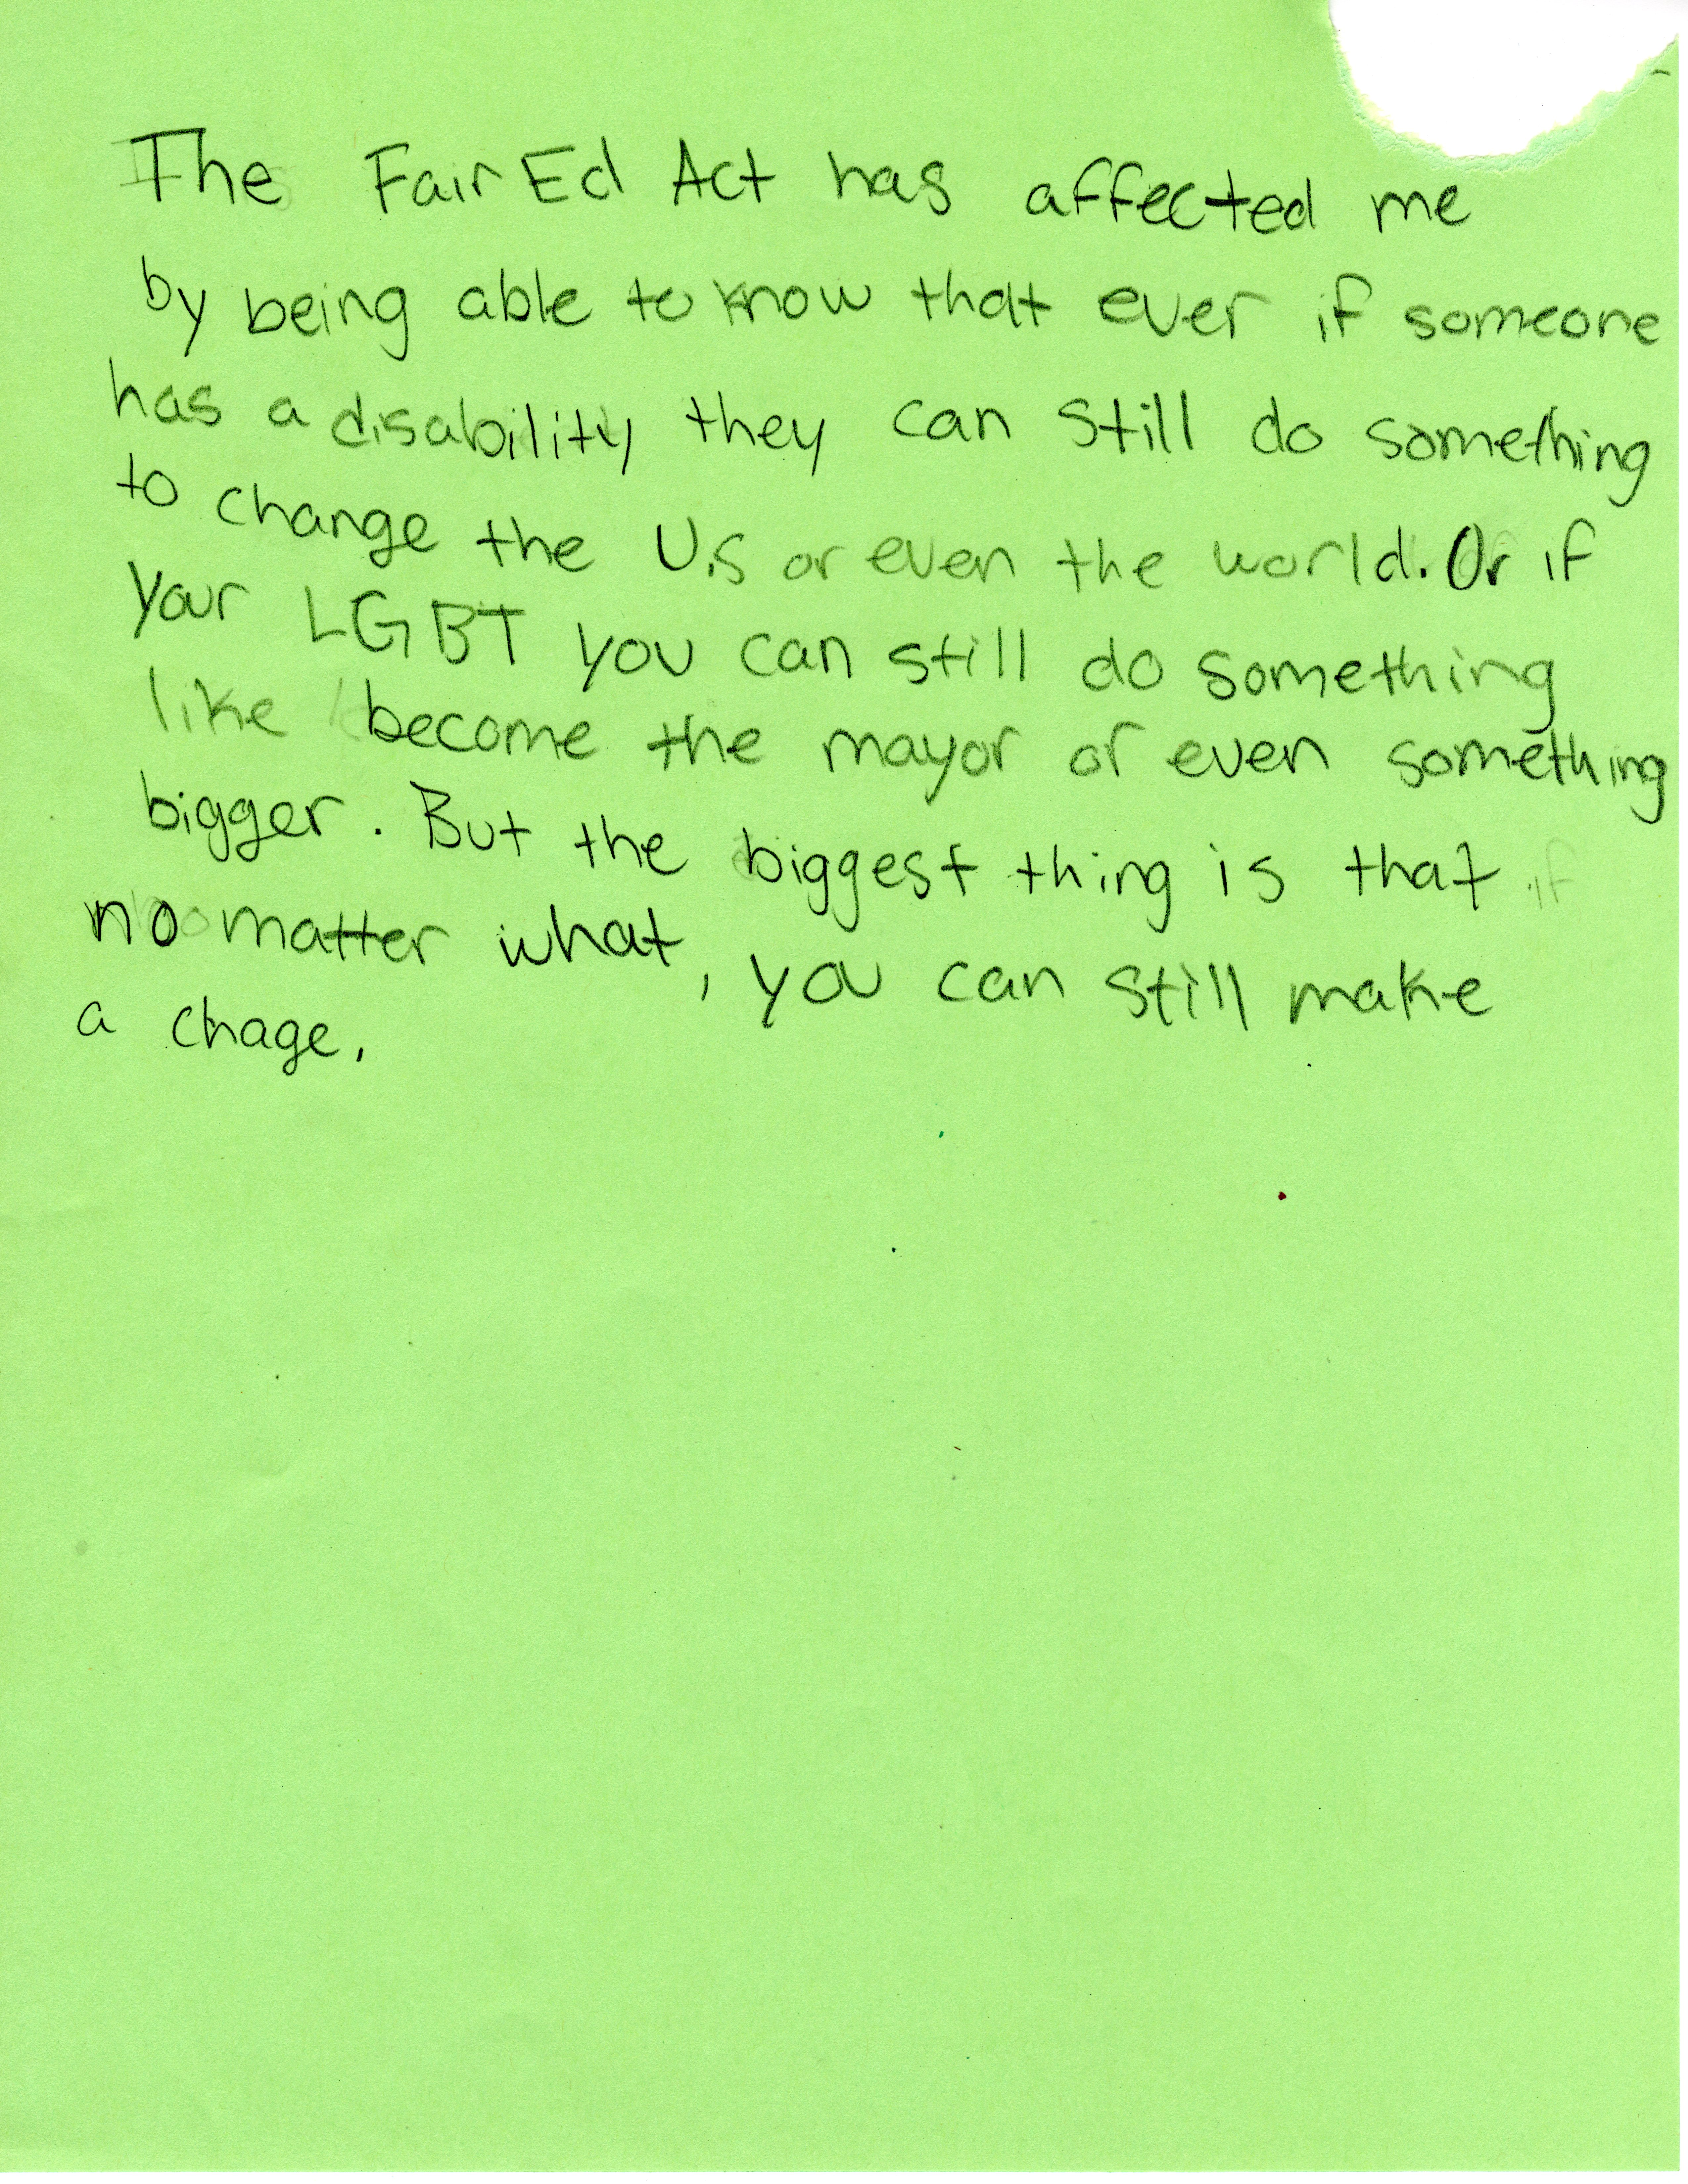 The Fair Ed Act has affected me
by being able to know that ever if someone
has a disability they can still do something
to change the U.S or even the world. Or if
your LGBT you can still do something
like become the mayor or even something
bigger. But the biggest thing is that
no matter what, you can still make
a chage.